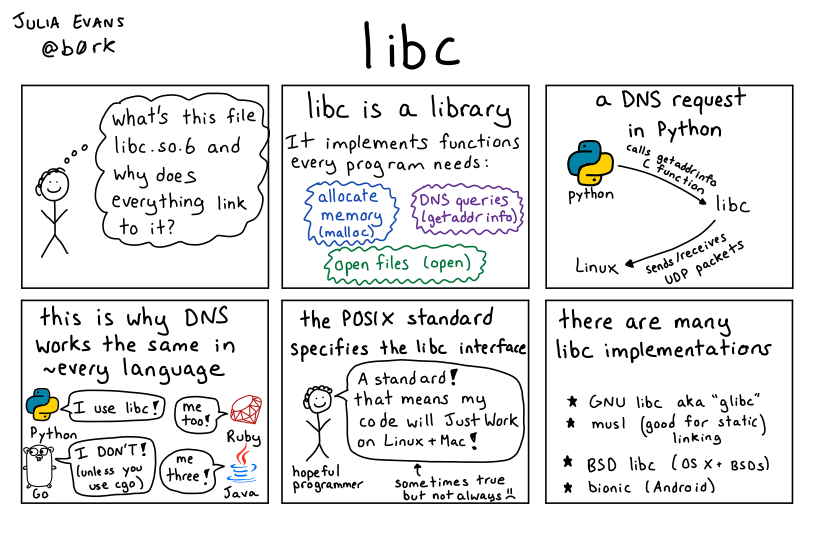 JULIA EVANS
@b0rk
libc
what's this file
libc.so.6 and
why does
everything link
to it?
libc is a library
It implements functions
every program needs:
allocate
memory
(malloc)
DNS queries
(getaddrinfo)
open files (open)
a DNS request
in Python
python
calls getaddrinfo
C function
libc
sends/receives
UDP packets
Linux
this is why DNS
works the same in
~every language
I use libc!
Python
me
too!
Ruby
I DON'T!
(unless you
use cgo)
Go
me
three!
Java
the POSIX standard
specifies the libc interface
A standard!
that means my
code will Just Work
on Linux + Mac!
hopeful
programmer
sometimes true
but not always
there are many
libc implementations
★ GNU libc aka "glibc"
★ musl (good for static)
linking
★ BSD libc (OS X + BSDs)
★ bionic (Android)